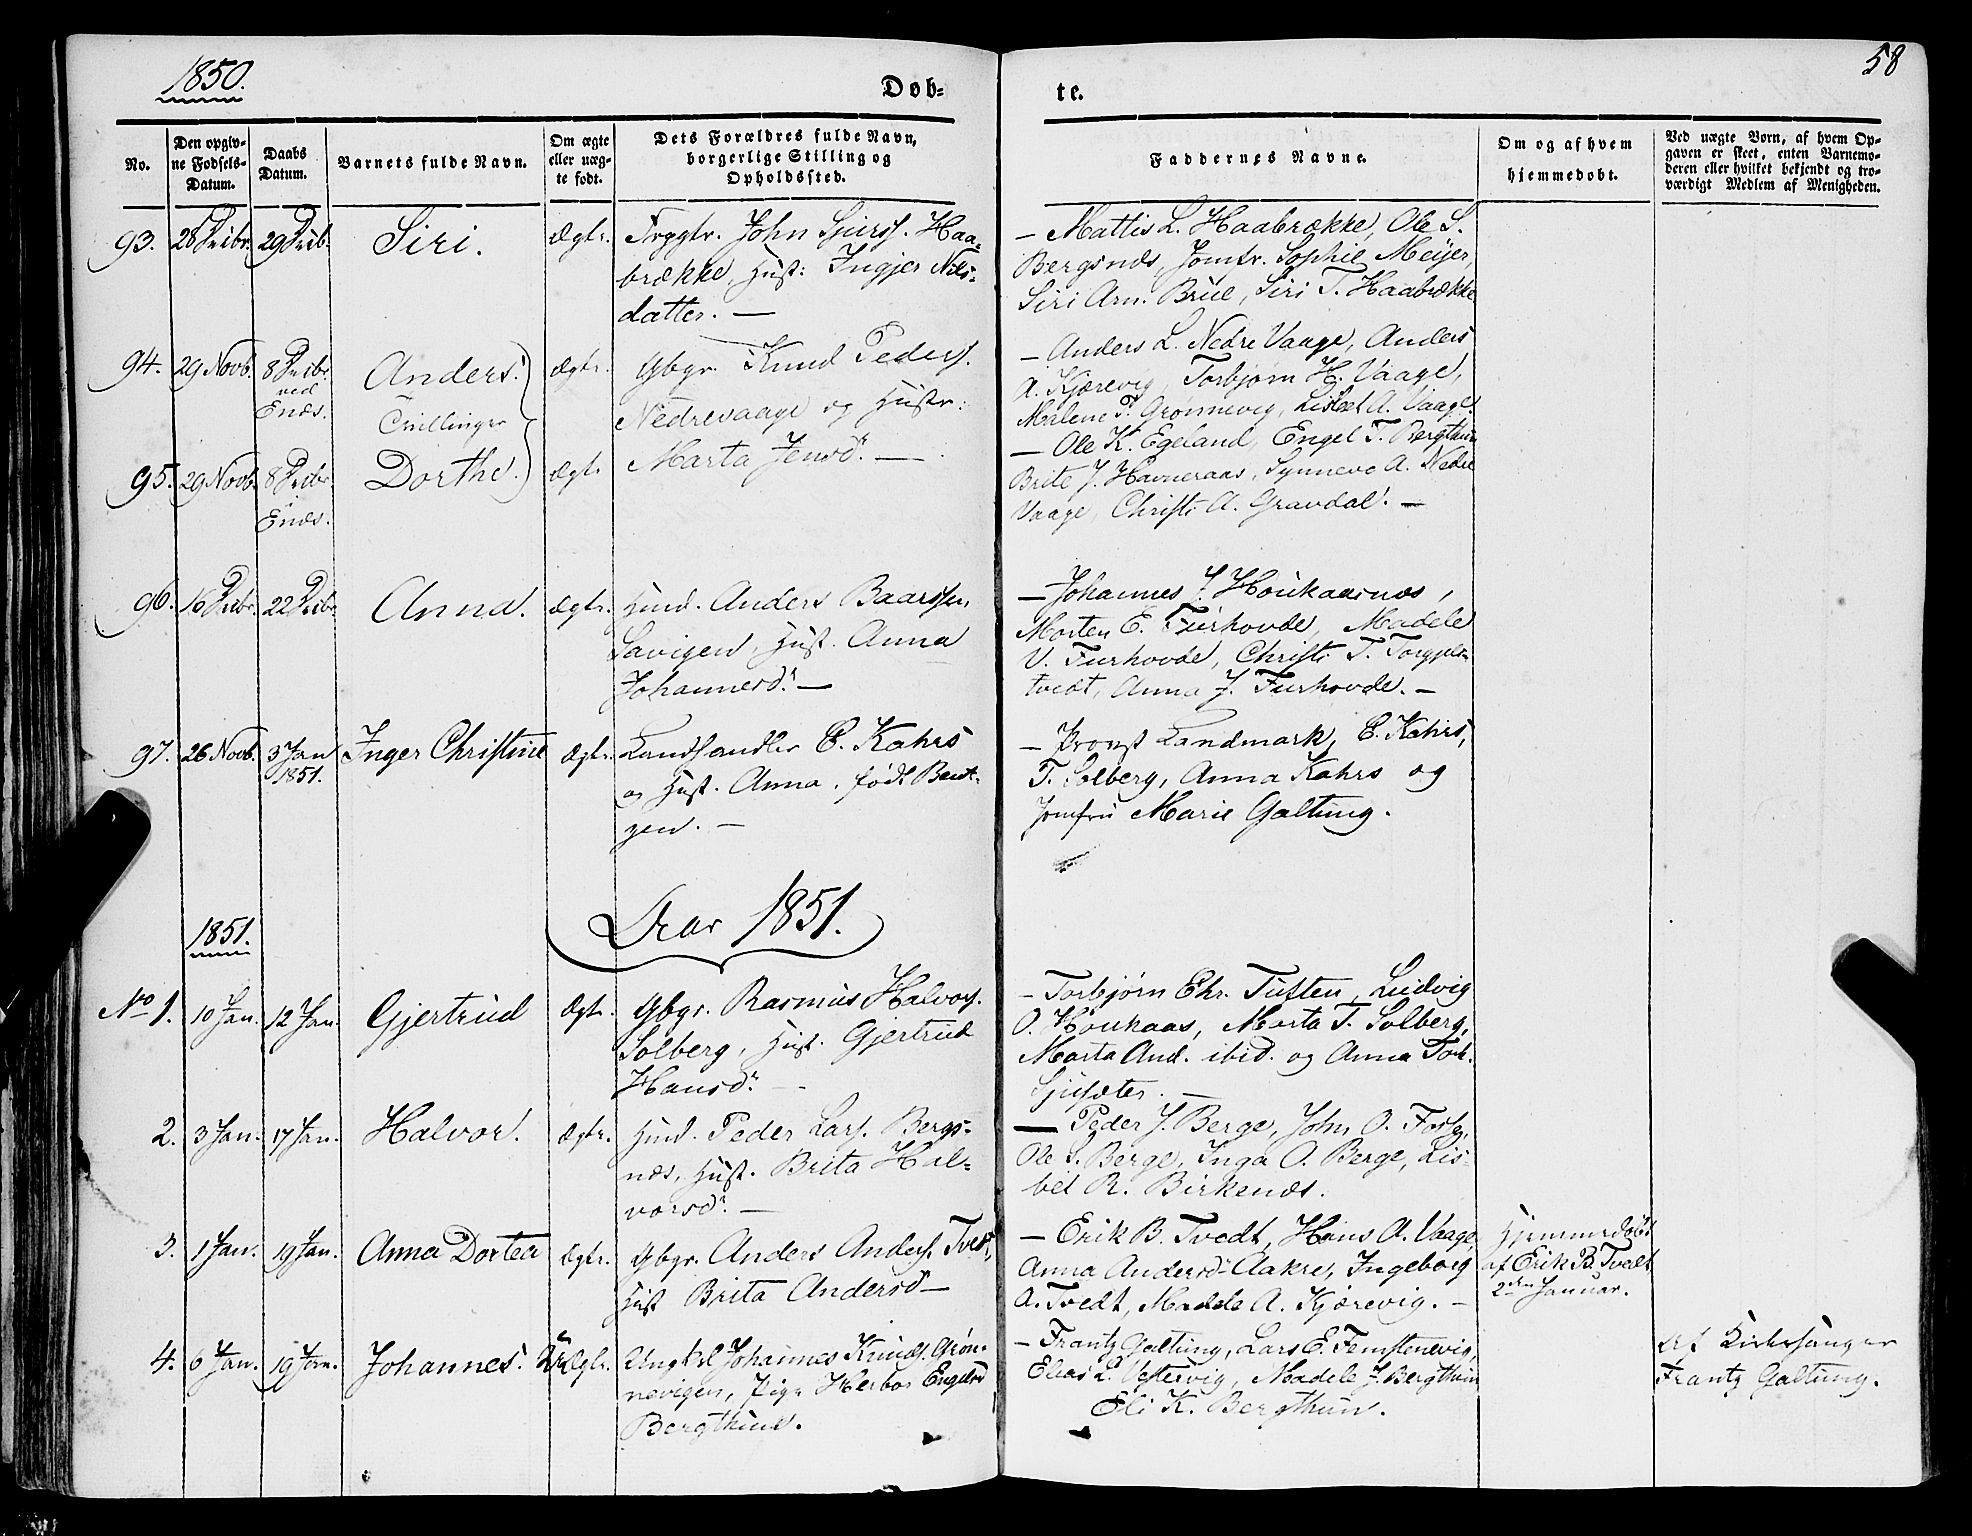 1850.
58
Døb-
te.
No.
Den opgiv-
ne Fødsels-
Datum.
Daabs
Datum.
Barnets fulde Navn.
Om ægte
eller uæg-
te født.
Dets Forældres fulde Navn,
borgerlige Stilling og
Opholdssted.
Faddernes Navne.
Om og af hvem
hjemmedøbt.
Ved uægte Børn, af hvem Op-
gaven er skeet, enten Barnemo-
deren eller hvilket bekjendt og tro-
værdigt Medlem af Menigheden.
93. 28 Decbr. 29 Decb. Siri. Ægte. John Sjurs. Haa-
brække, Hust: Ingjer Nils-
datter. —
— Mattis L. Haabrække, Ole S.
Bergsnæs, Jomfr. Sophie Meijer,
Siri Arn. Brue, Siri T. Haabrække
94. 29 Novb. 8 Decbr.
ved
Enæs.
Anders.
Tvillinger
Ægte. Gbgr. Knud Peders.
Nedrevaage og Hustr:
Marta Jensd. —
— Anders L. Nedre Vaage, Anders
A. Kjærevig, Torbjørn H. Vaage,
Malene P. Grønnevig, Lisbet A. Vaage.
95. 29 Novb. 8 Decbr.
Enæs.
Dorthe. Ægte
— Ole K. Egeland, Engel T. Bergthun
Brite J. Havneraas, Synneve A. Nedre
Vaage, Christi A. Gravdal. —
96. 16 Decbr. 22 Decbr Anna. Ægte. Huusm. Anders Baarssen
Lavigen, Hust. Anna
Johannesd. —
— Johannes J. Houkaasnæs,
Morten E. Furhovde, Madele
V. Furhovde, Christi T. Torgjels-
tvedt, Anna J. Furhovde. —
97. 26 Novb. 3 Jan
1851.
Inger Christine Ægte. Landhandler E. Kahrs
og Hust. Anna, født Bent-
zen. —
— Provst Landmark, E. Kahrs,
T. Solberg, Anna Kahrs og
Jomfru Marie Galtung.
Aar 1851.
1851.
No 1. 10 Jan. 12 Jan. Gjertrud Ægte. Gbgr. Rasmus Halvors.
Solberg, Hust. Gjertrud
Hansd.
— Torbjørn Chr. Tuften, Ludvig
O. Houkaas, Marta T. Solberg,
Marta And. ibid. og Anna Torb.
Sjusæter. —
2. 3 Jan. 17 Jan. Halvor. Ægte. Huusm. Peder Lars. Bergs-
næs, Hust. Brita Hal-
vorsd. —
— Peder J. Berge, John O.
Ole S. Berge, Inga O. Berge, Lis-
bet R. Birkenæs.
3. 1 Jan. 19 Jan. Anna Dortea Ægte. Gbgr. Anders Anders. Tvedt,
Hust Brita Andersd —
— Erik B. Tvedt, Hans A. Vaage,
Anna Andersd. Aakre, Ingeborg
A. Tvedt, Madele A. Kjærevig. —
Hjemmedøbt
af Erik B. Tvedt
2den Januar.
4. 6 Jan. 19 Jan. Johannes. UÆgte. Ungkl Johannes Knuds. Grøn-
nevigen, Pige Herbor Engelsd
Bergthun.
— Frantz Galtung, Lars E. Femstenevig,
Elias L. Vestervig, Madele J. Bergthun
Eli K. Bergthun.
Af Kirkesanger
Frantz Galtung.